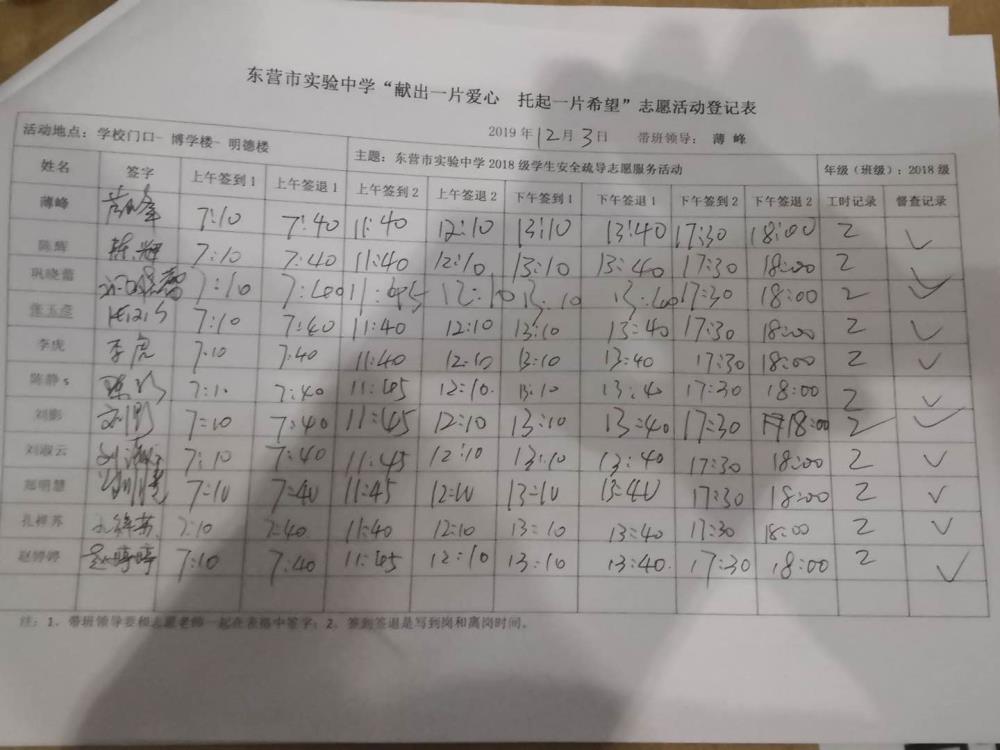 东营市实验中学“献出一片爱心 托起一片希望”志愿活动登记表
2019年12月3日 带班领导： 薄峰
活动地点：学校门口-博学楼-明德楼 主题：东营市实验中学2018级学生安全疏导志愿服务活动 年级（班级）：2018级
姓名 签字 上午签到1 上午签退1 上午签到2 上午签退2 下午签到1 下午签退1 下午签到2 下午签退2 工时记录 督查记录
薄峰 薄峰 7:10 7:40 11:40 12:10 13:10 13:40 17:30 18:00 2 ✓
陈辉 陈辉 7:10 7:40 11:40 12:10 13:10 13:40 17:30 18:00 2 ✓
巩晓蕾 巩晓蕾 7:10 7:40 11:45 12:10 13:10 13:40 17:30 18:00 2 ✓
张玉彦 7:10 7:40 11:40 12:10 13:10 13:40 17:30 18:00 2 ✓
李虎 李虎 7:10 7:40 11:40 12:10 13:10 13:40 17:30 18:00 2 ✓
陈静s 7:10 7:40 11:45 12:10 13:10 13:40 17:30 18:00 2 ✓
刘影 刘影 7:10 7:40 11:45 12:10 13:10 13:40 17:30 18:00 2 ✓
刘淑云 刘淑云 7:10 7:40 11:45 12:10 13:10 13:40 17:30 18:00 2 ✓
郑明慧 7:10 7:40 11:45 12:10 13:10 13:40 17:30 18:00 2 ✓
孔祥苏 孔祥苏 7:10 7:40 11:40 12:10 13:10 13:40 17:30 18:00 2 ✓
赵婷婷 赵婷婷 7:10 7:40 11:45 12:10 13:10 13:40 17:30 18:00 2 ✓
注：1、带班领导要和志愿老师一起在表格中签字；2、签到签退是写到岗和离岗时间。